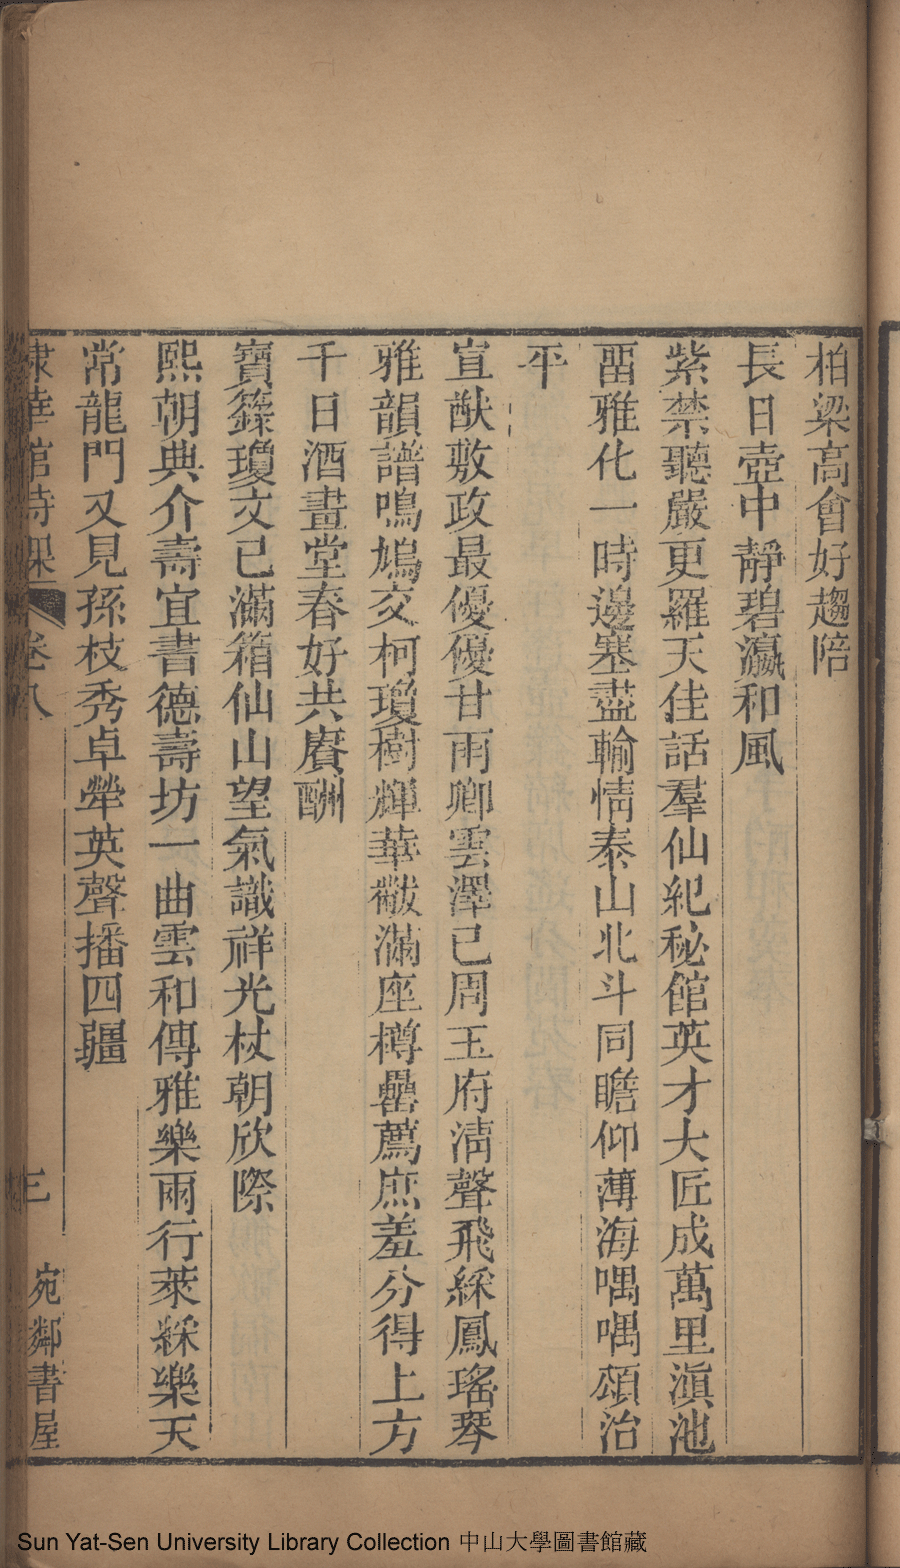 柏梁高會好趨陪
長日壺中靜碧瀛和風
紫禁聽嚴更羅天佳話羣仙紀秘館英才大匠成萬里滇池
畱雅化一時邊塞盡輸情泰山北斗同瞻仰薄海喁喁頌治
平
宣猷敷政最優優甘雨卿雲澤已周玉府淸聲飛綵鳳瑤琴
雅韻譜鳴鳩交柯瓊樹輝華黻滿座樽罍薦庶羞分得上方
千日酒畫堂春好共賡酬
寶籙瓊文已滿箱仙山望氣識祥光杖朝欣際
熙朝典介壽宜書德壽坊一曲雲和傳雅樂兩行萊綵樂天
常龍門又見孫枝秀卓犖英聲播四疆
棣華館詩課 卷八 三 宛鄰書屋
Sun Yat-Sen University Library Collection 中山大學圖書館藏